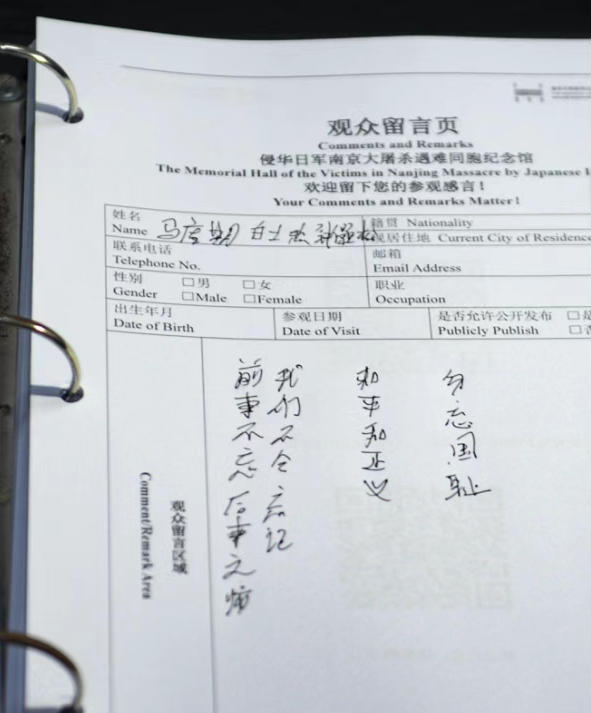 观众留言页
Comments and Remarks
侵华日军南京大屠杀遇难同胞纪念馆
The Memorial Hall of the Victims in Nanjing Massacre by Japanese I
欢迎留下您的参观感言！
Your Comments and Remarks Matter!
姓名
Name
籍贯 Nationality
现居住地 Current City of Residence
联系电话
Telephone No.
邮箱
Email Address
性别 □男 □女
Gender □Male □Female
职业
Occupation
出生年月
Date of Birth
参观日期
Date of Visit
是否允许公开发布 □是
Publicly Publish □否
观众留言区域
Comment/Remark Area
勿忘国耻
和平和正义
我们不会忘记
前事不忘后事之师